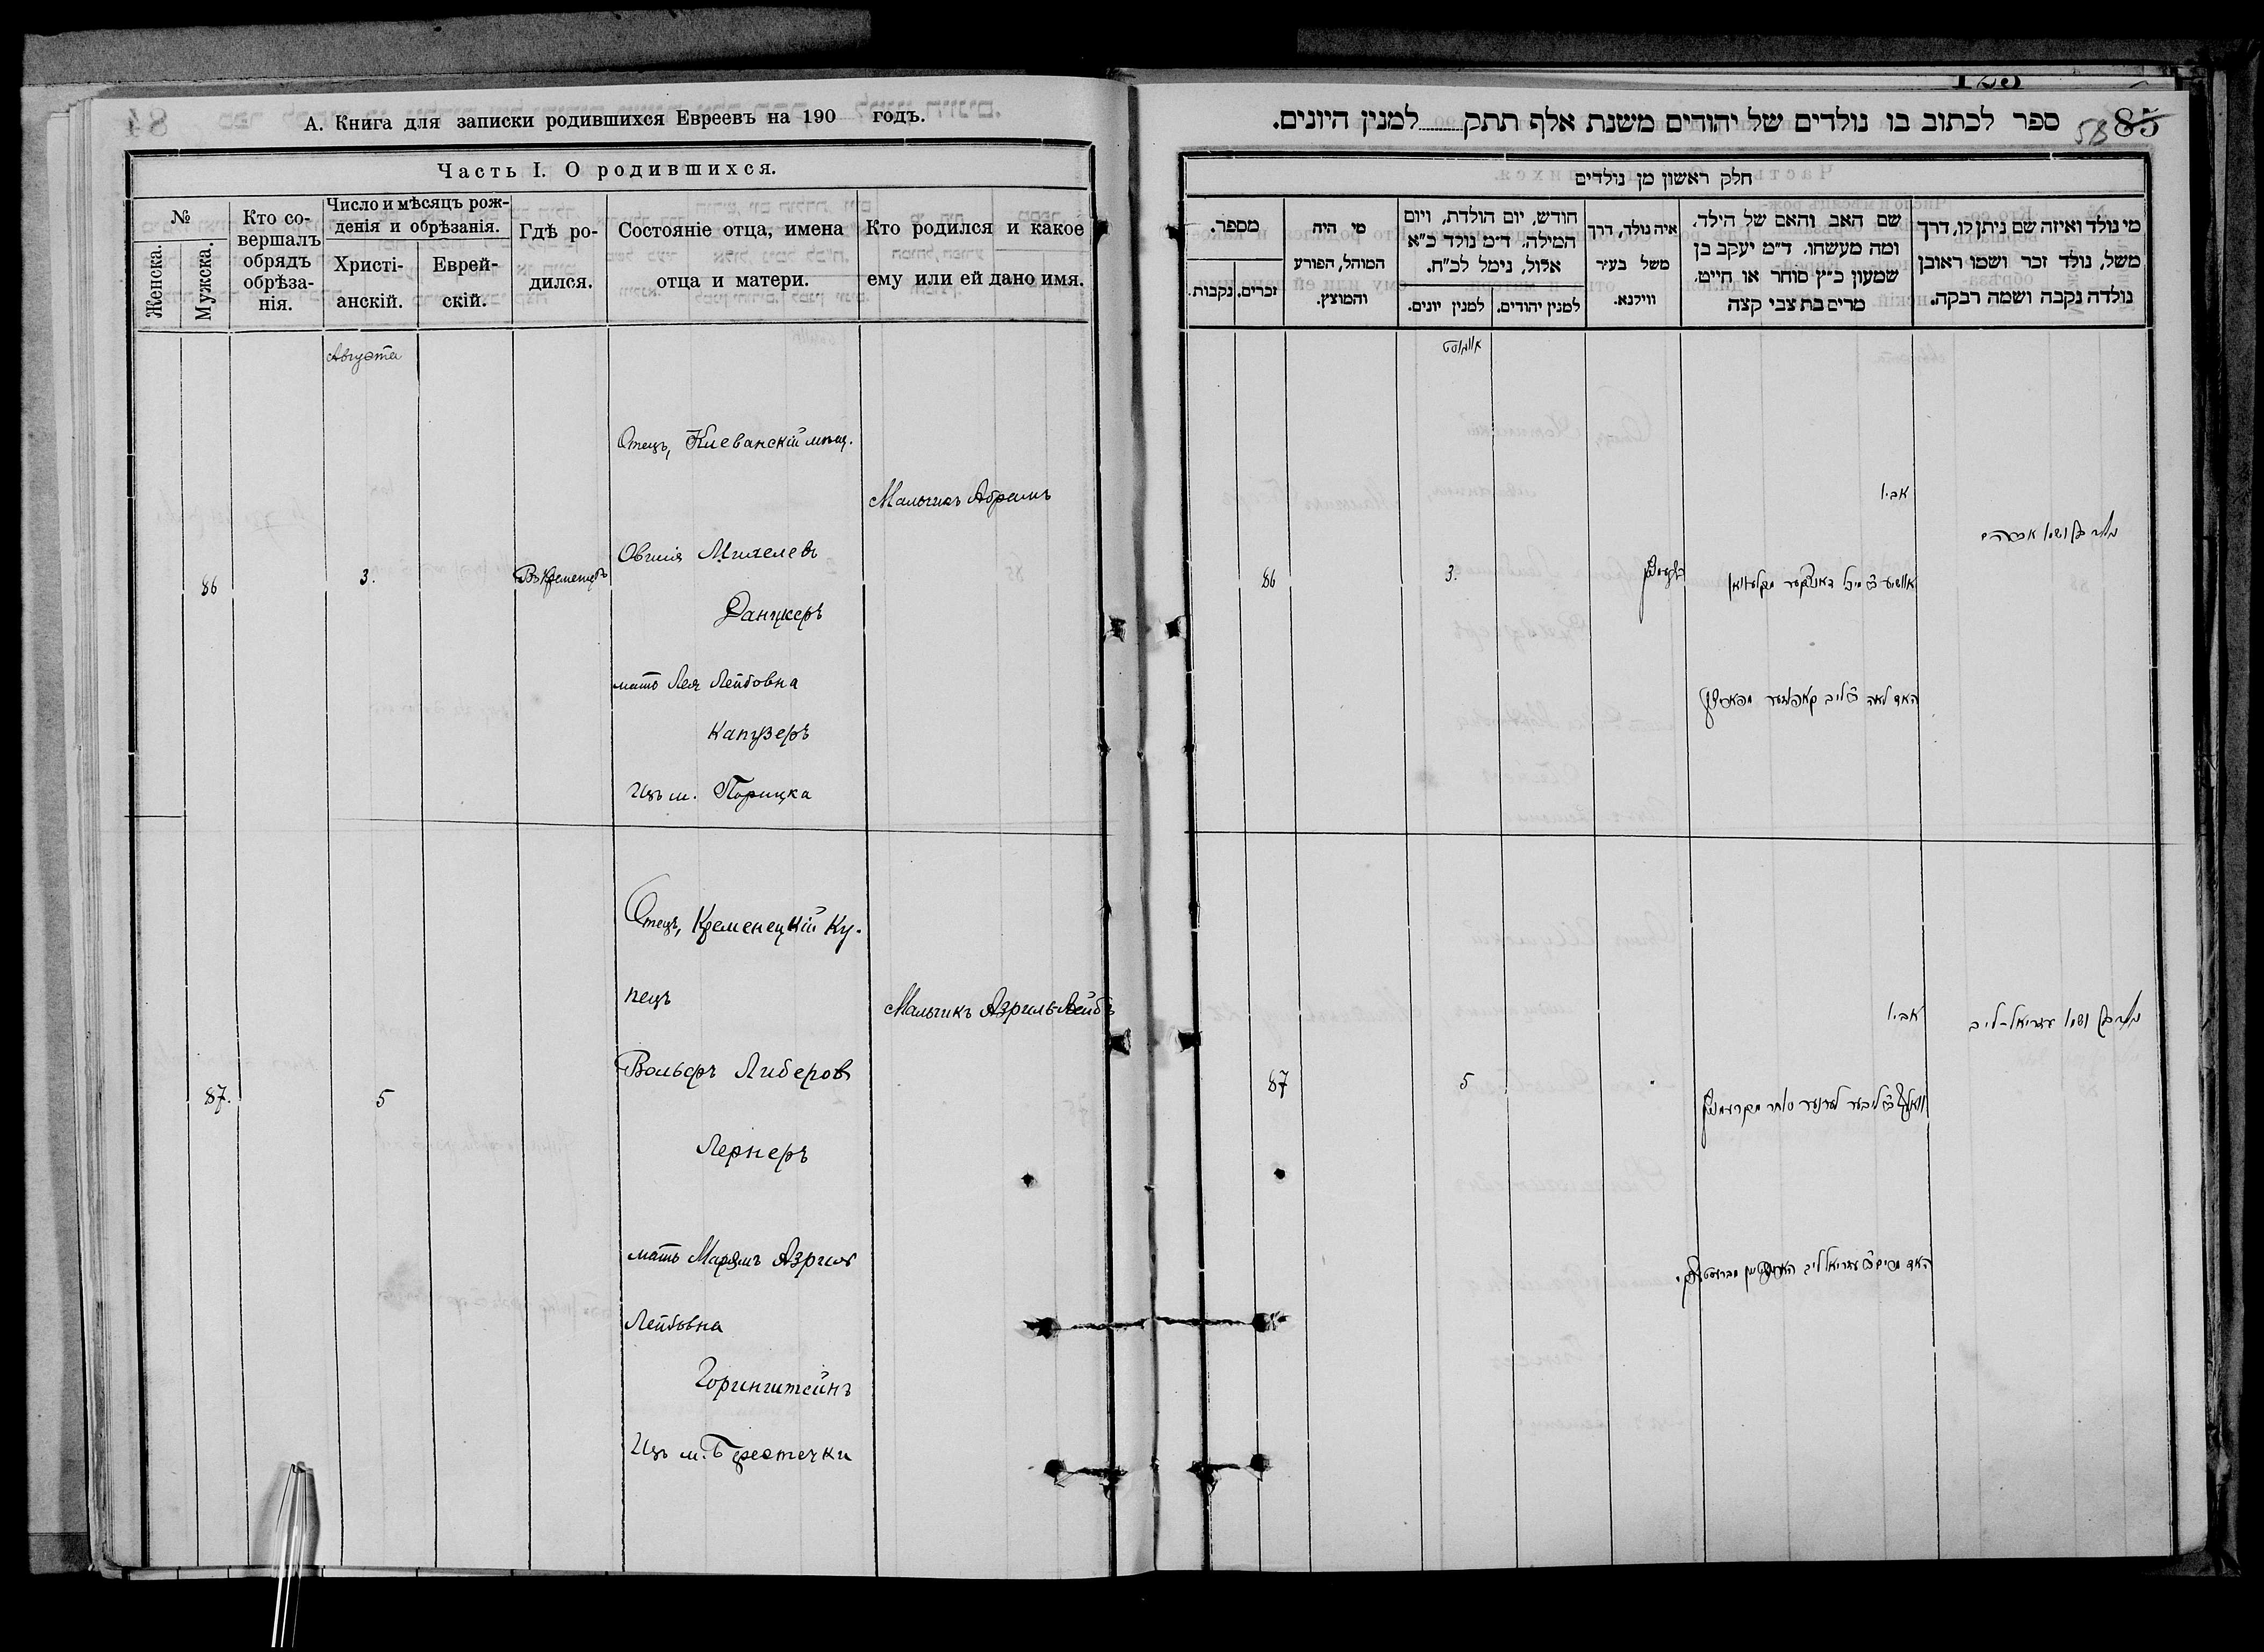 А. Книга для записки родившихся Евреевъ на 190 годъ.
Часть I. О родившихся.
№
Женска.
Мужска.
Кто со-
вершалъ
обрядъ
обрѣза-
нія.
Число и мѣсяцъ рож-
денія и обрѣзанія.
Христі-
анскій.
Еврей-
скій.
Гдѣ ро-
дился.
Состояніе отца, имена
отца и матери.
Кто родился и какое
ему или ей дано имя.
Августа
Отецъ, Клеванскій мѣщ.
Мальчикъ Абрамъ
Овшія Михелевъ
86
3.
Въ Кременцѣ
Данцкеръ
мать Лея Лейбовна
Капузеръ
Изъ м. Порицка
Отецъ, Кременецкій Ку-
пецъ
Мальчикъ Азриль-Лейбъ
Вольфъ Либеровъ
87.
5
Лернеръ
мать Марямъ Азриль
Лейбовна
Горингштейнъ
Изъ м. Берестечки
85
58
ספר לכתוב בו נולדים של יהודים משנת אלף תתק למנין היונים.
חלק ראשון מן נולדים
מספר.
זכרים.
נקבות.
מי היה
המוהל, הפורע
והמוצץ.
חודש, יום הולדת, ויום
המילה. ד״מ נולד כ״א
אלול, נימל לכ״ח.
למנין יונים.
למנין יהודים.
איה נולד, דרך
משל בעיר
ווילנא.
שם האב והאם של הילד.
ומה מעשהו. ד״מ יעקב בן
שמעון כ״ץ סוחר או חייט.
מרים בת צבי קצה
מי נולד ואיזה שם ניתן לו, דרך
משל, נולד זכר ושמו ראובן
נולדה נקבה ושמה רבקה.
אווגוסט
אביו
נולד בן ושמו אברהם
86
3.
אביו
נולד בן ושמו עזריאל-ליב
87
5